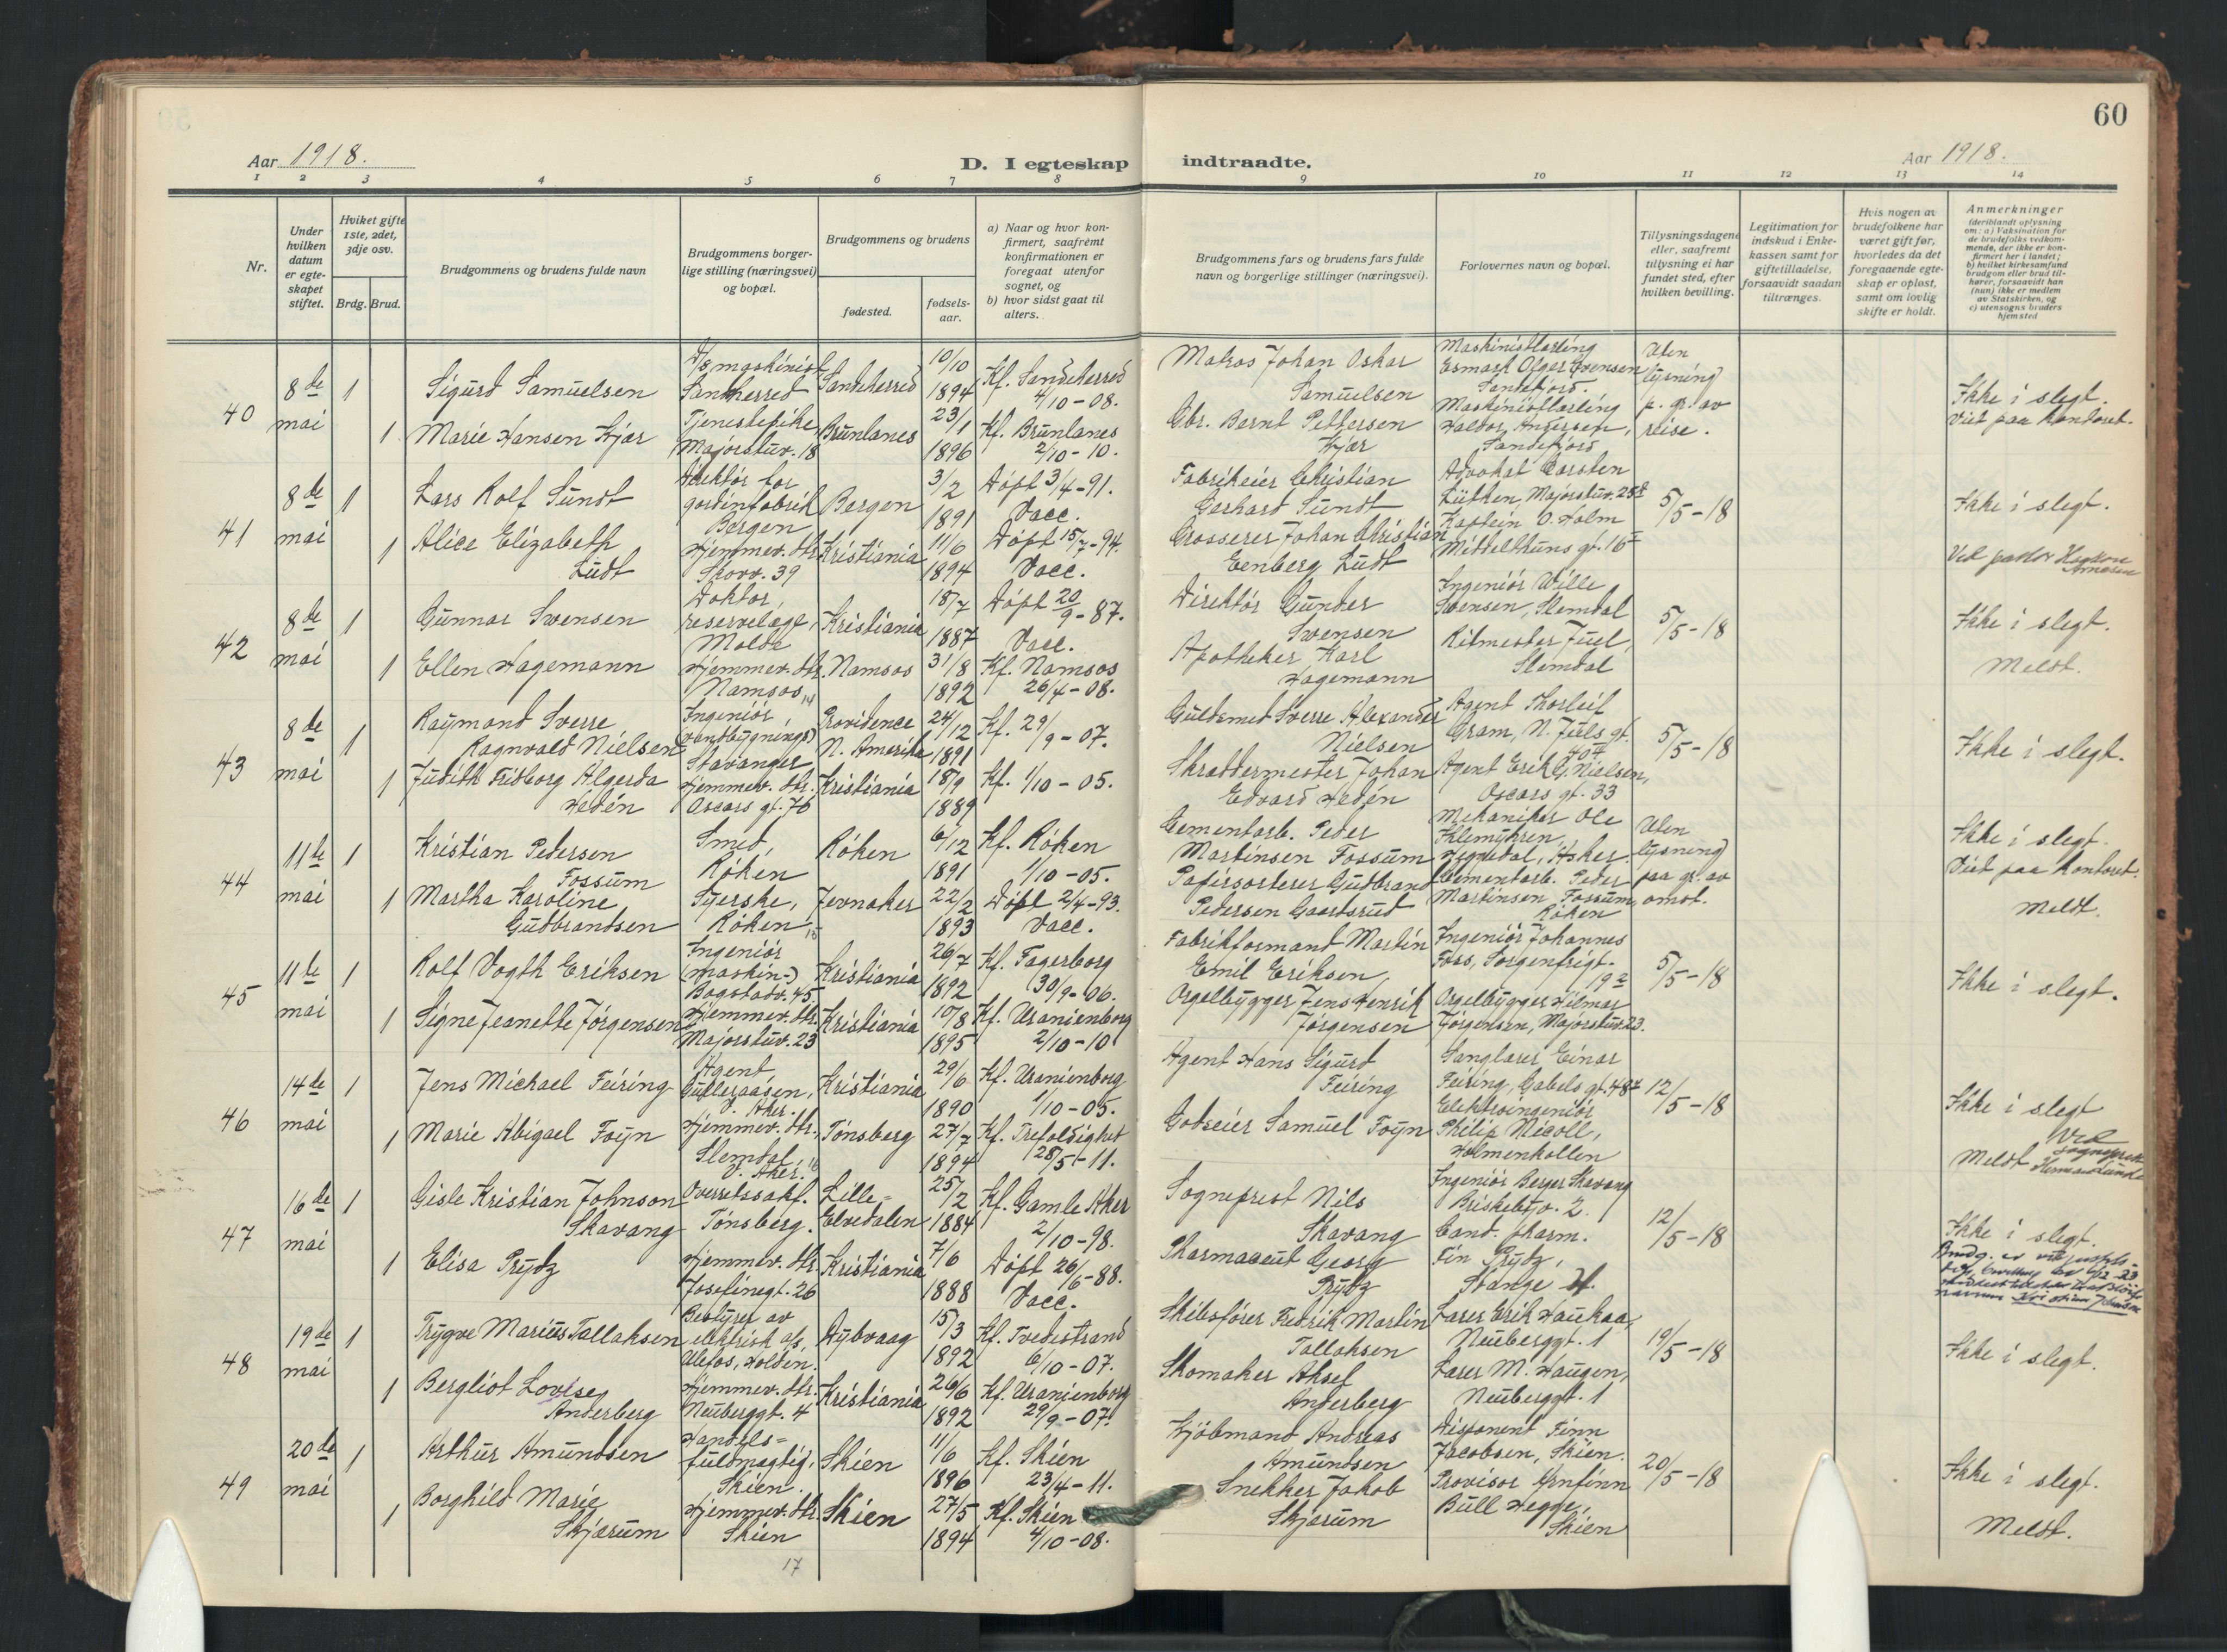 60
Aar 1918.
D. I egteskap indtraadte.
Aar 1918.
1 2 3 4 5 6 7 8 9 10 11 12 13 14
Nr.
Under hvilken datum er egte- skapet stiftet.
Hvilket gifte 1ste, 2det, 3dje osv.
Brdg. Brud.
Brudgommens og brudens fulde navn
Brudgommens borger- lige stilling (næringsvei) og bopæl.
Brudgommens og brudens
fødested.
fødsels- aar.
a) Naar og hvor kon- firmert, saafremt konfirmationen er foregaat utenfor sognet, og
b) hvor sidst gaat til alters.
Brudgommens fars og brudens fars fulde navn og borgerlige stillinger (næringsvei).
Forlovernes navn og bopæl.
Tillysningsdagene eller, saafremt tillysning ei har fundet sted, efter hvilken bevilling.
Legitimation for indskud i Enke- kassen samt for giftetilladelse, forsaavidt saadan tiltrænges.
Hvis nogen av brudefolkene har været gift før, hvorledes da det foregaaende egte- skap er opløst, samt om lovlig skifte er holdt.
Anmerkninger (deriblandt oplysning om: a) Vaksination for de brudefolks vedkom- mende, der ikke er kon- firmert her i landet; b) hvilket kirkesamfund brudgom eller brud til- hører, forsaavidt han (hun) ikke er medlem av Statskirken, og c) utensogns bruders hjemsted
40
8de mai
1
Sigurd Samuelsen
D/s maskinist, Sandherred
Sandeherred
10/10 1894
Kf. Sandeherred 4/10-08.
Matros Johan Oskar Samuelsen
Maskinistlærling Esmark Olger Evensen Sandefjord.
Uten lysning p. gr. av reise.
Ikke i slegt. Viet paa kontoret.
1
Marie Hansen Hjær
Tjenestepike, Majorstuv. 18
Brunlanes
23/1 1896
Kf. Brunlanes 2/10-10.
Gbr. Bernt Pettersen Hjær
Maskinistlærling Haldor Andersen, Sandefjord
41
8de mai
1
Lars Rolf Sundt
Direktør for gardinfabrik Bergen
Bergen
3/2 1891
Døpt 3/4-91. Vacc.
Fabrikeier Christian Gerhard Sundt
Advokat Carsten Lütken, Majorstuv. 25
5/5-18
Ikke i slegt.
1
Alice Elizabeth Ludt
Hjemmev. dtr. Skovv. 39
Kristiania
11/6 1894
Døpt 15/7-94. Vacc.
Grosserer Johan Christian Eenberg Ludt
Kaptein O. Holm Middelthuns gt. 16
Ved pastor Haakon Arnesen
42
8de mai
1
Gunnar Svensen
Doktor, reservelæge, Molde
Kristiania
18/7 1887
Døpt 20/9-87. Vacc.
Direktør Gunder Svensen
Ingeniør Wille Svensen, Slemdal
5/5-18
Ikke i slegt.
1
Ellen Hagemann
Hjemmev. dtr. Namsos
14
Namsos
31/8 1892
Kf. Namsos 26/4-08.
Apotheker Karl Hagemann
Ritmester Juel, Slemdal
Meldt.
43
8de mai
1
Raymond Sverre Ragnvald Nielsen
Ingeniør, (vandbygnings) Stavanger
Providence N. Amerika
24/12 1891
Kf. 29/9-07.
Guldsmed Sverre Alexander Nielsen
Agent Thorleif Gram, N. Juels gt. 40
5/5-18
Ikke i slegt.
1
Judith Fridborg Algerda Hedén
Hjemmev. dtr. Oscars gt. 76
Kristiania
18/9 1889
Kf. 1/10-05.
Skræddermester Johan Edvard Hedén
Agent Erik G. Nielsen, Oscars gt. 33
44
11te mai
1
Kristian Pedersen Fossum
Smed, Røken
Røken
6/12 1891
Kf. Røken 1/10-05.
Cementarb. Peder Martinsen Fossum
Mekaniker Ole Klemyhren, Hegdedal, Asker.
Uten lysning paa gr. av omst.
Ikke i slegt. Viet paa kontoret.
1
Martha Karoline Gudbrandsen
Syerske, Røken
15
Jevnaker
22/2 1893
Døpt 2/4-93. Vacc.
Papirsorterer Gudbrand Pedersen Gaardsrud
Cementarb. Peder Martinsen Fossum, Røken
Meldt.
45
11te mai
1
Rolf Vogth Eriksen
Ingeniør (maskin-) Bogstadv. 45
Kristiania
26/7 1892
Kf. Fagerborg 30/9-06.
Fabrikformand Martin Emil Eriksen,
Ingeniør Johannes Foss, Sorgenfrigt. 19
5/5-18
Ikke i slegt.
1
Signe Jeanette Jørgensen
Hjemmev. dtr. Majorstuv. 23
Kristiania
10/8 1895
Kf. Uranienborg 2/10-10
Orgelbygger Jens Henrik Jørgensen
Orgelbygger Hilmar Jørgensen, Majorstuv 23.
46
14de mai
1
Jens Michael Feiring
Agent, Gulleraasen, V. Aker.
Kristiania
29/6 1890
Kf. Uranienborg 1/10-05.
Agent Hans Sigurd Feiring
Sanglærer Einar Feiring, Gabels gt. 48
12/5-18
Ikke i slegt
1
Marie Abigael Foyn
Hjemmev. dtr. Slemdal, V. Aker.
16
Tønsberg
27/7 1894
Kf. Trefoldighet 28/5-11.
Godseier Samuel Foyn
Elektroingeniør Philip Nicoll, Holmenkollen
Meldt
Ved sogneprest
47
16de mai
1
Gisle Kristian Johnson Skavang
Overretssakf. Tønsberg.
Lille-Elvedalen
25/2 1884
Kf. Gamle Aker 2/10-98.
Sogneprest Nils Skavang
Ingeniør Berger Skavang Briskebyv. 2.
12/5-18
Ikke i slegt.
1
Elisa Prydz
Hjemmev. dtr. Josefinegt. 26
Kristiania
7/6 1888
Døpt 26/6-88. Vacc.
Pharmaceut Georg Prydz
Cand. pharm. Fin Prydz, Stange
48
19de mai
1
Trygve Marius Tallaksen
Bestyrer av elektrisk a/s, Ulefos, Holden.
Dybvaag
15/3 1892
Kf. Tvedestrand 6/10-07.
Skibsfører Fredrik Martin Tallaksen
Lærer Erik Haukaa, Neuberggt. 1
19/5-18
Ikke i slegt.
1
Bergliot Lovise Anderberg
Hjemmev. dtr. Neuberggt. 4
Kristiania
26/6 1892
Kf. Uranienborg 29/9-07.
Skomaker Aksel Anderberg
Lærer M. Haugen, Neuberggt. 1
49
20de mai
1
Arthur Amundsen
Handels= fuldmægtig, Skien.
Skien
11/6 1896
Kf. Skien 23/4-11.
Kjøbmand Andreas Amundsen
Disponent Finn Jacobsen, Skien.
20/5-18
Ikke i slegt.
1
Borghild Marie Skjærum
Hjemmev. dtr. Skien
17
Skien
27/5 1894
Kf. Skien 4/10-08.
Snekker Jakob Skjærum
Provisor Arnfinn Bull Hegge, Skien
Meldt.